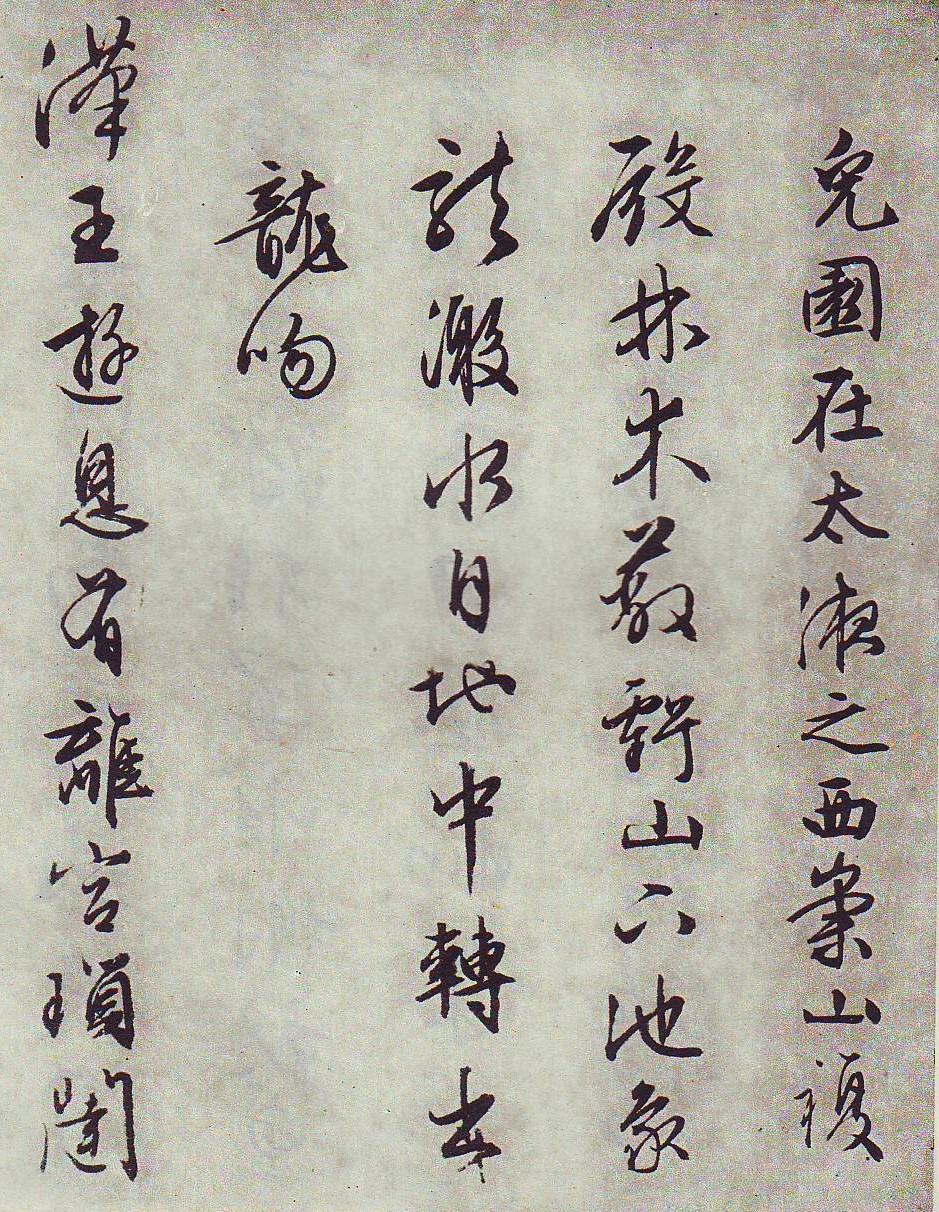 兔園在太液之西崇山複
殿林木蔽虧山下池象
龍激水自地中轉出
龍吻
漢王遊息有離宮瑣闥